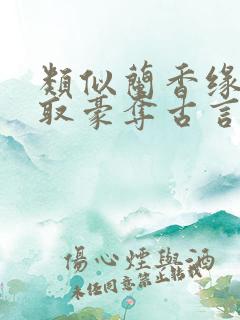 類似蘭香缘
取豪奪古言
傷心煙與酒
未经同意禁止轉載